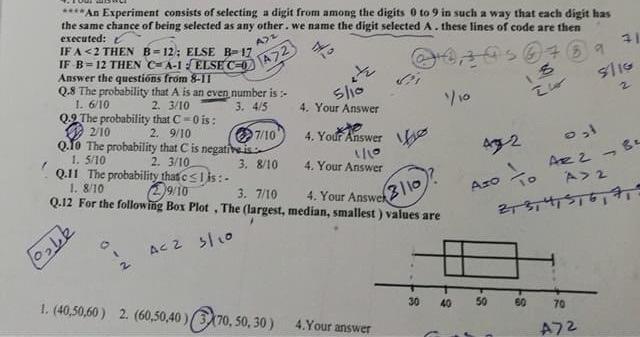 ****An Experiment consists of selecting a digit from among the digits 0 to 9 in such a way that each digit has
the same chance of being selected as any other. we name the digit selected A. these lines of code are then
executed:
IF A <2 THEN B=12; ELSE B=17
IF B=12 THEN C=A-1; ELSE C=0
A>2
A>2
1/10
0 1 2 3 4 5 6 7 8 9
Answer the questions from 8-11
Q.8 The probability that A is an even number is :-
5/10
1/10
5/10
1. 6/10 2. 3/10 3. 4/5 4. Your Answer
Q.9 The probability that C = 0 is :
1. 2/10 2. 9/10 3. 7/10 4. Your Answer
Q.10 The probability that C is negative is :-
1/10
1. 5/10 2. 3/10 3. 8/10 4. Your Answer
Q.11 The probability that c ≤ 1 is :-
1. 8/10 2. 9/10 3. 7/10 4. Your Answer 3/10 ?
A=0 1/10
A>2
2, 3, 4, 5, 6, 7,
Q.12 For the following Box Plot , The (largest, median, smallest ) values are
0, 1, 2 A<2 3/10
30 40 50 60 70
1. (40,50,60) 2. (60,50,40) 3. (70, 50, 30 ) 4.Your answer
A>2